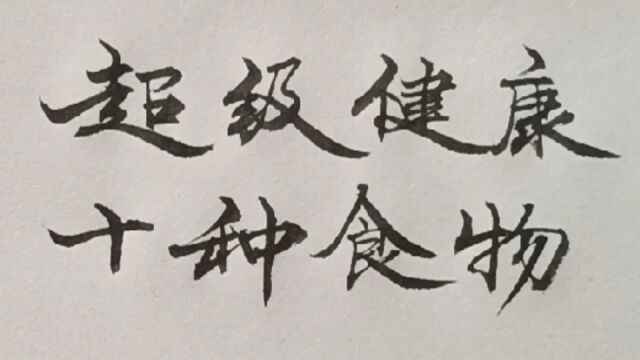 超级健康
十种食物